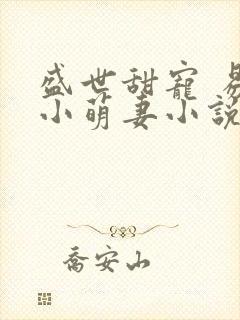 盛世甜寵
小萌妻小說
喬安山